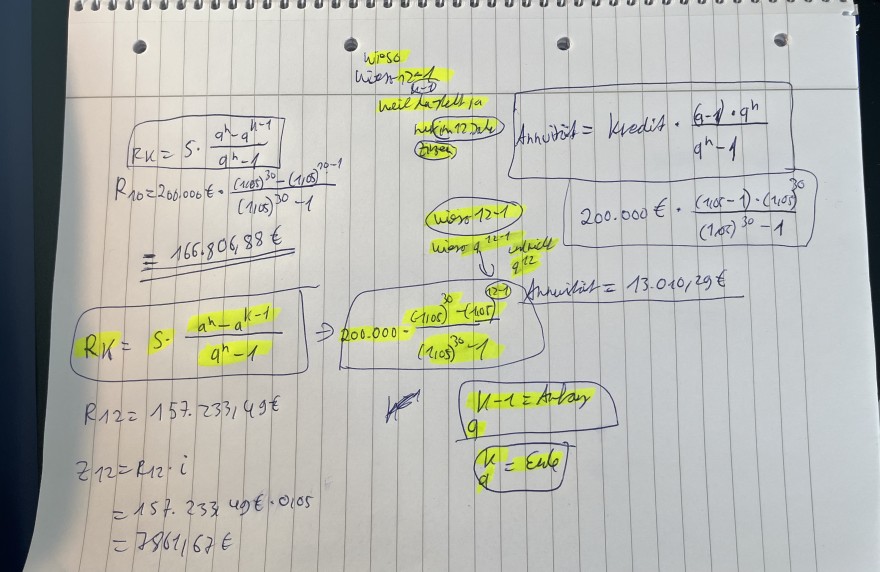 wieso
wieso 12-1
k-1
weil da steht ja
12 Jahr
Zinsen
RK = S · qⁿ - q^(k-1) / qⁿ - 1
R10 = 200.000 € · (1,05)^30 - (1,05)^(20-1) / (1,05)^30 - 1
= 166.806,88 €
Annuität = Kredit · (q-1) · qⁿ / qⁿ - 1
200.000 € · (1,05 - 1) · (1,05)^30 / (1,05)^30 - 1
Annuität = 13.010,29 €
wieso 12-1
wieso q^(12-1)
q^12
RK = S · qⁿ - q^(k-1) / qⁿ - 1 ⇒ 200.000 · (1,05)^30 - (1,05)^(12-1) / (1,05)^30 - 1
R12 = 157.233,49 €
q^(k-1) = Anfang
q^k = Ende
Z12 = R12 · i
= 157.233,49 € · 0,05
= 7861,67 €